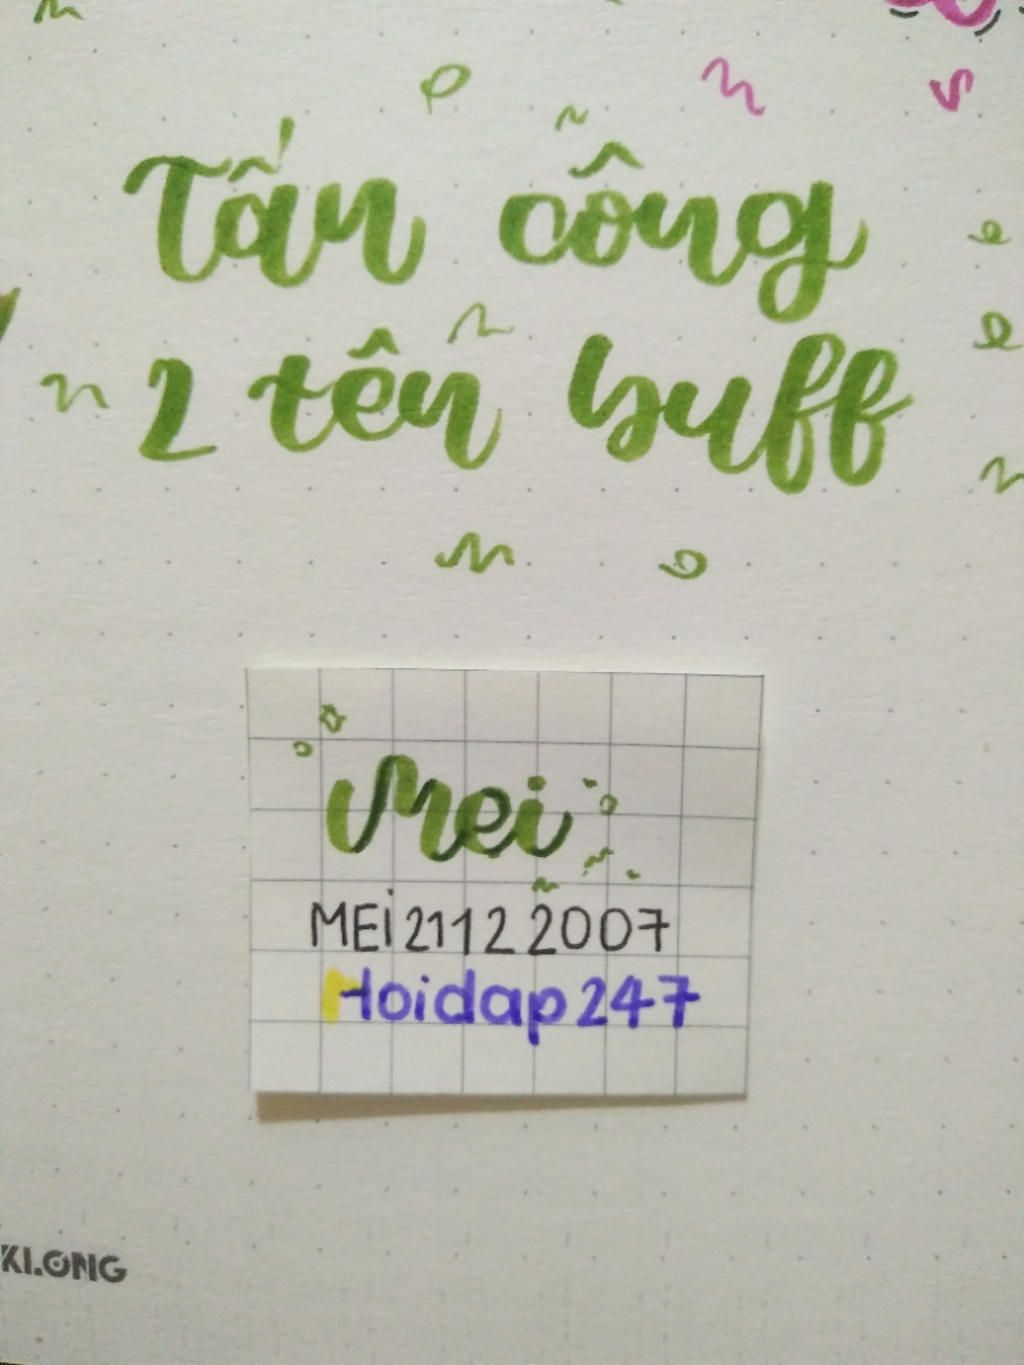 Tấn công
2 tên buff
Mei
MEi21122007
Hoidap247
KLONG